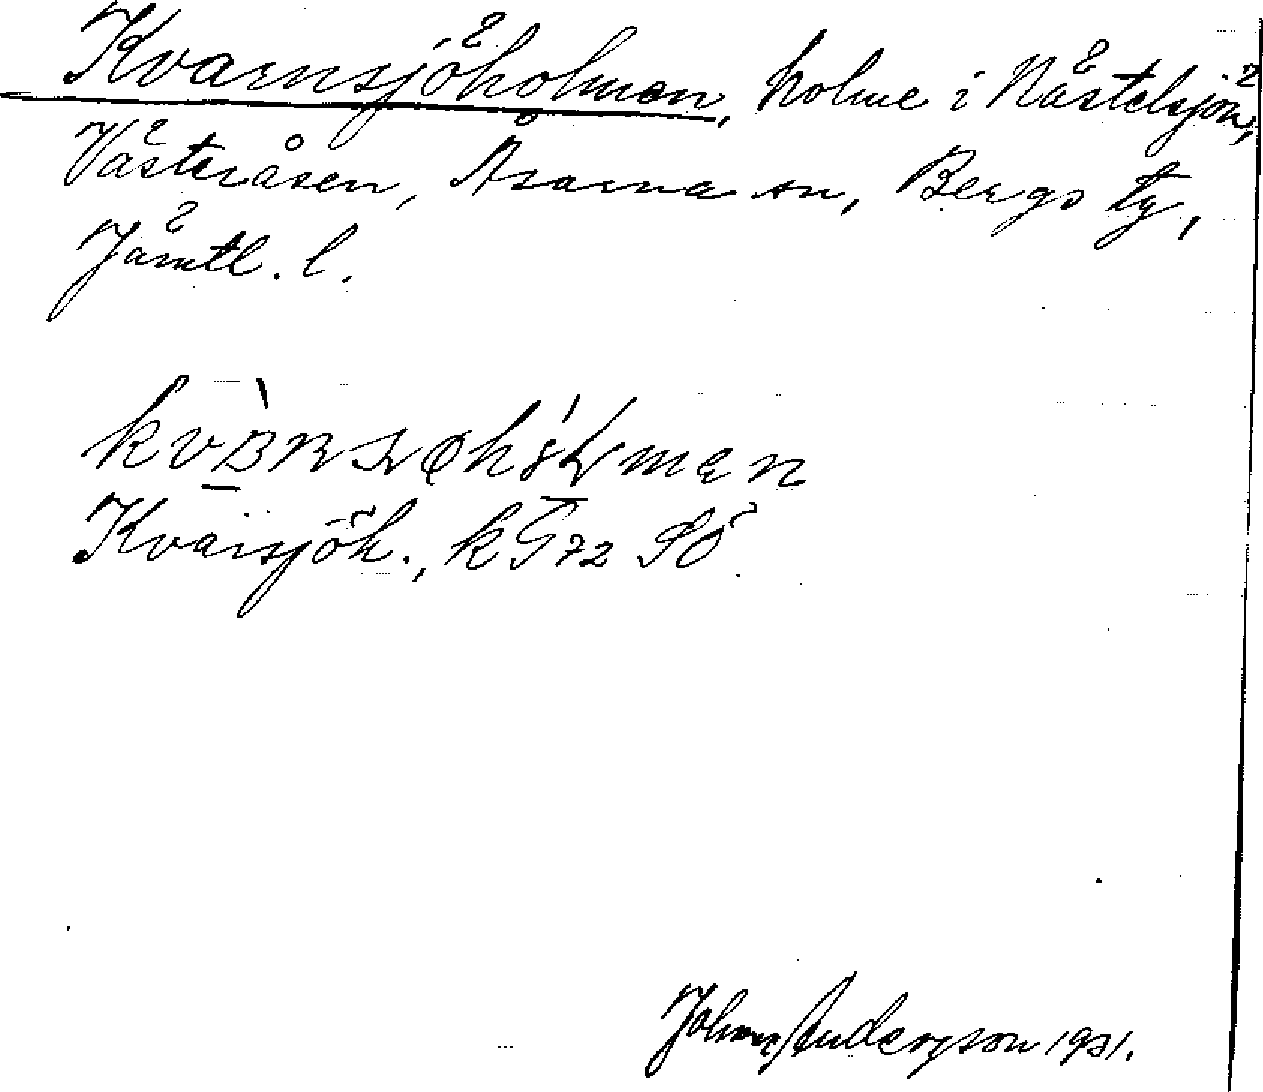 Kvarnsjöholmen, holme i Nästelsjön,
Västeråsen, Åsarna sn, Bergs tg,
Jämtl. l.
Kvarsjöh., kG72 SÖ
Johan Anderson 1931.